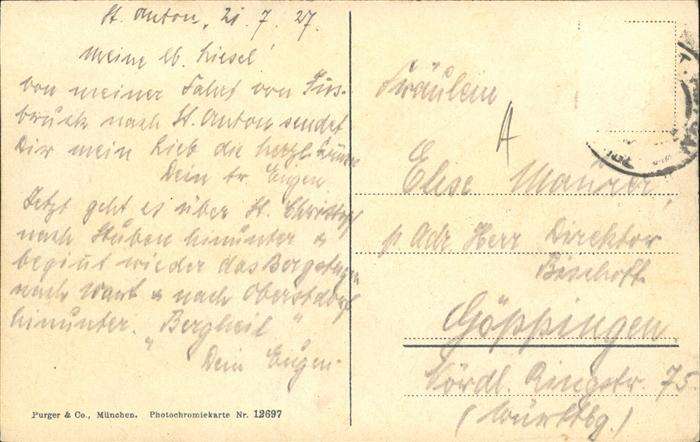 St. Anton, 21.7.27.
Meine lb. Liesel!
von meiner Fahrt von Inns-
bruck nach St. Anton sendet
Dir mein Lieb die herzl. Grüsse
Dein tr. Eugen.
Jetzt geht es über St. Christoph
nach Stuben hinunter &
begint wieder das Bergsteigen
nach Wart & nach Oberstdorf
hinunter. "Bergheil"
Dein Eugen.
Purger & Co., München. Photochromiekarte Nr. 12697
Fräulein
A
Elise Maurer,
p. Adr. Herr Direktor
Bischoff
Göppingen
Nördl. Ringstr. 75
(Württbg.)